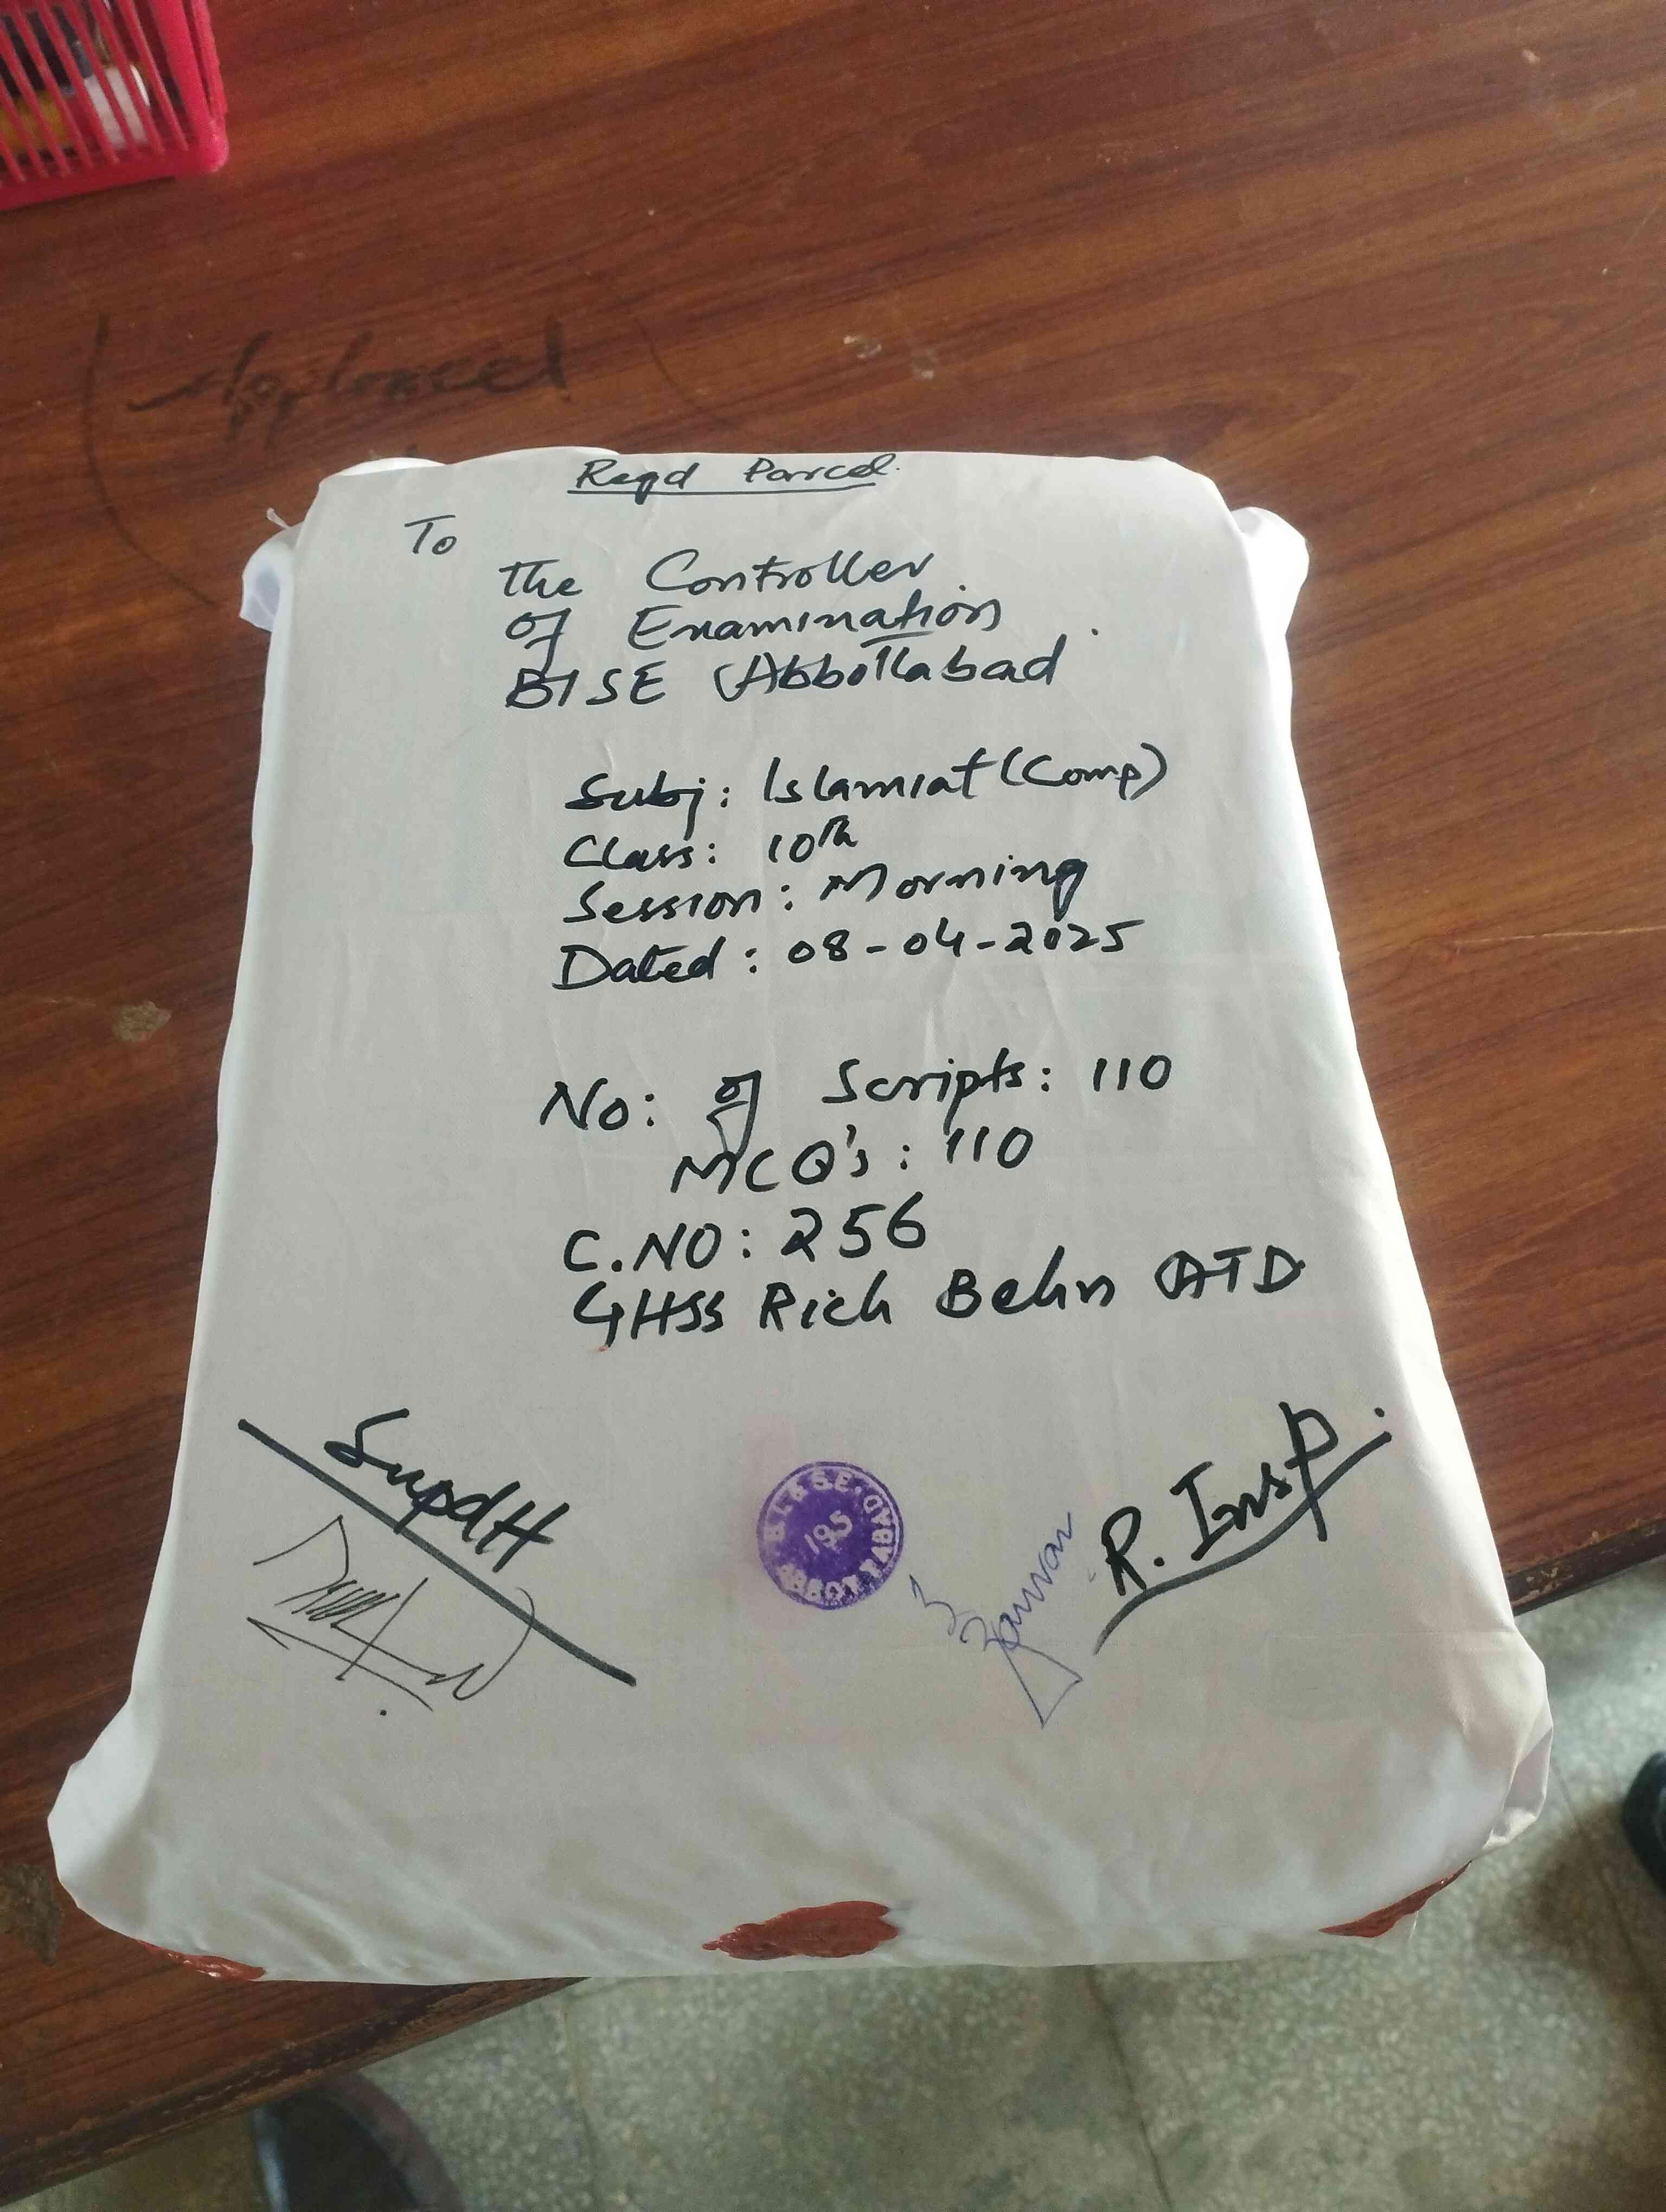 Regd Parcel.
To
The Controller
of Examination
BISE Abbottabad
Subj: Islamiat (Comp)
Class: 10th
Session: Morning
Dated: 08-04-2025
No: of Scripts: 110
MCQ's: 110
C.NO: 256
GHSS Rich Behn ATD
Supdtt
R. Insp.
195